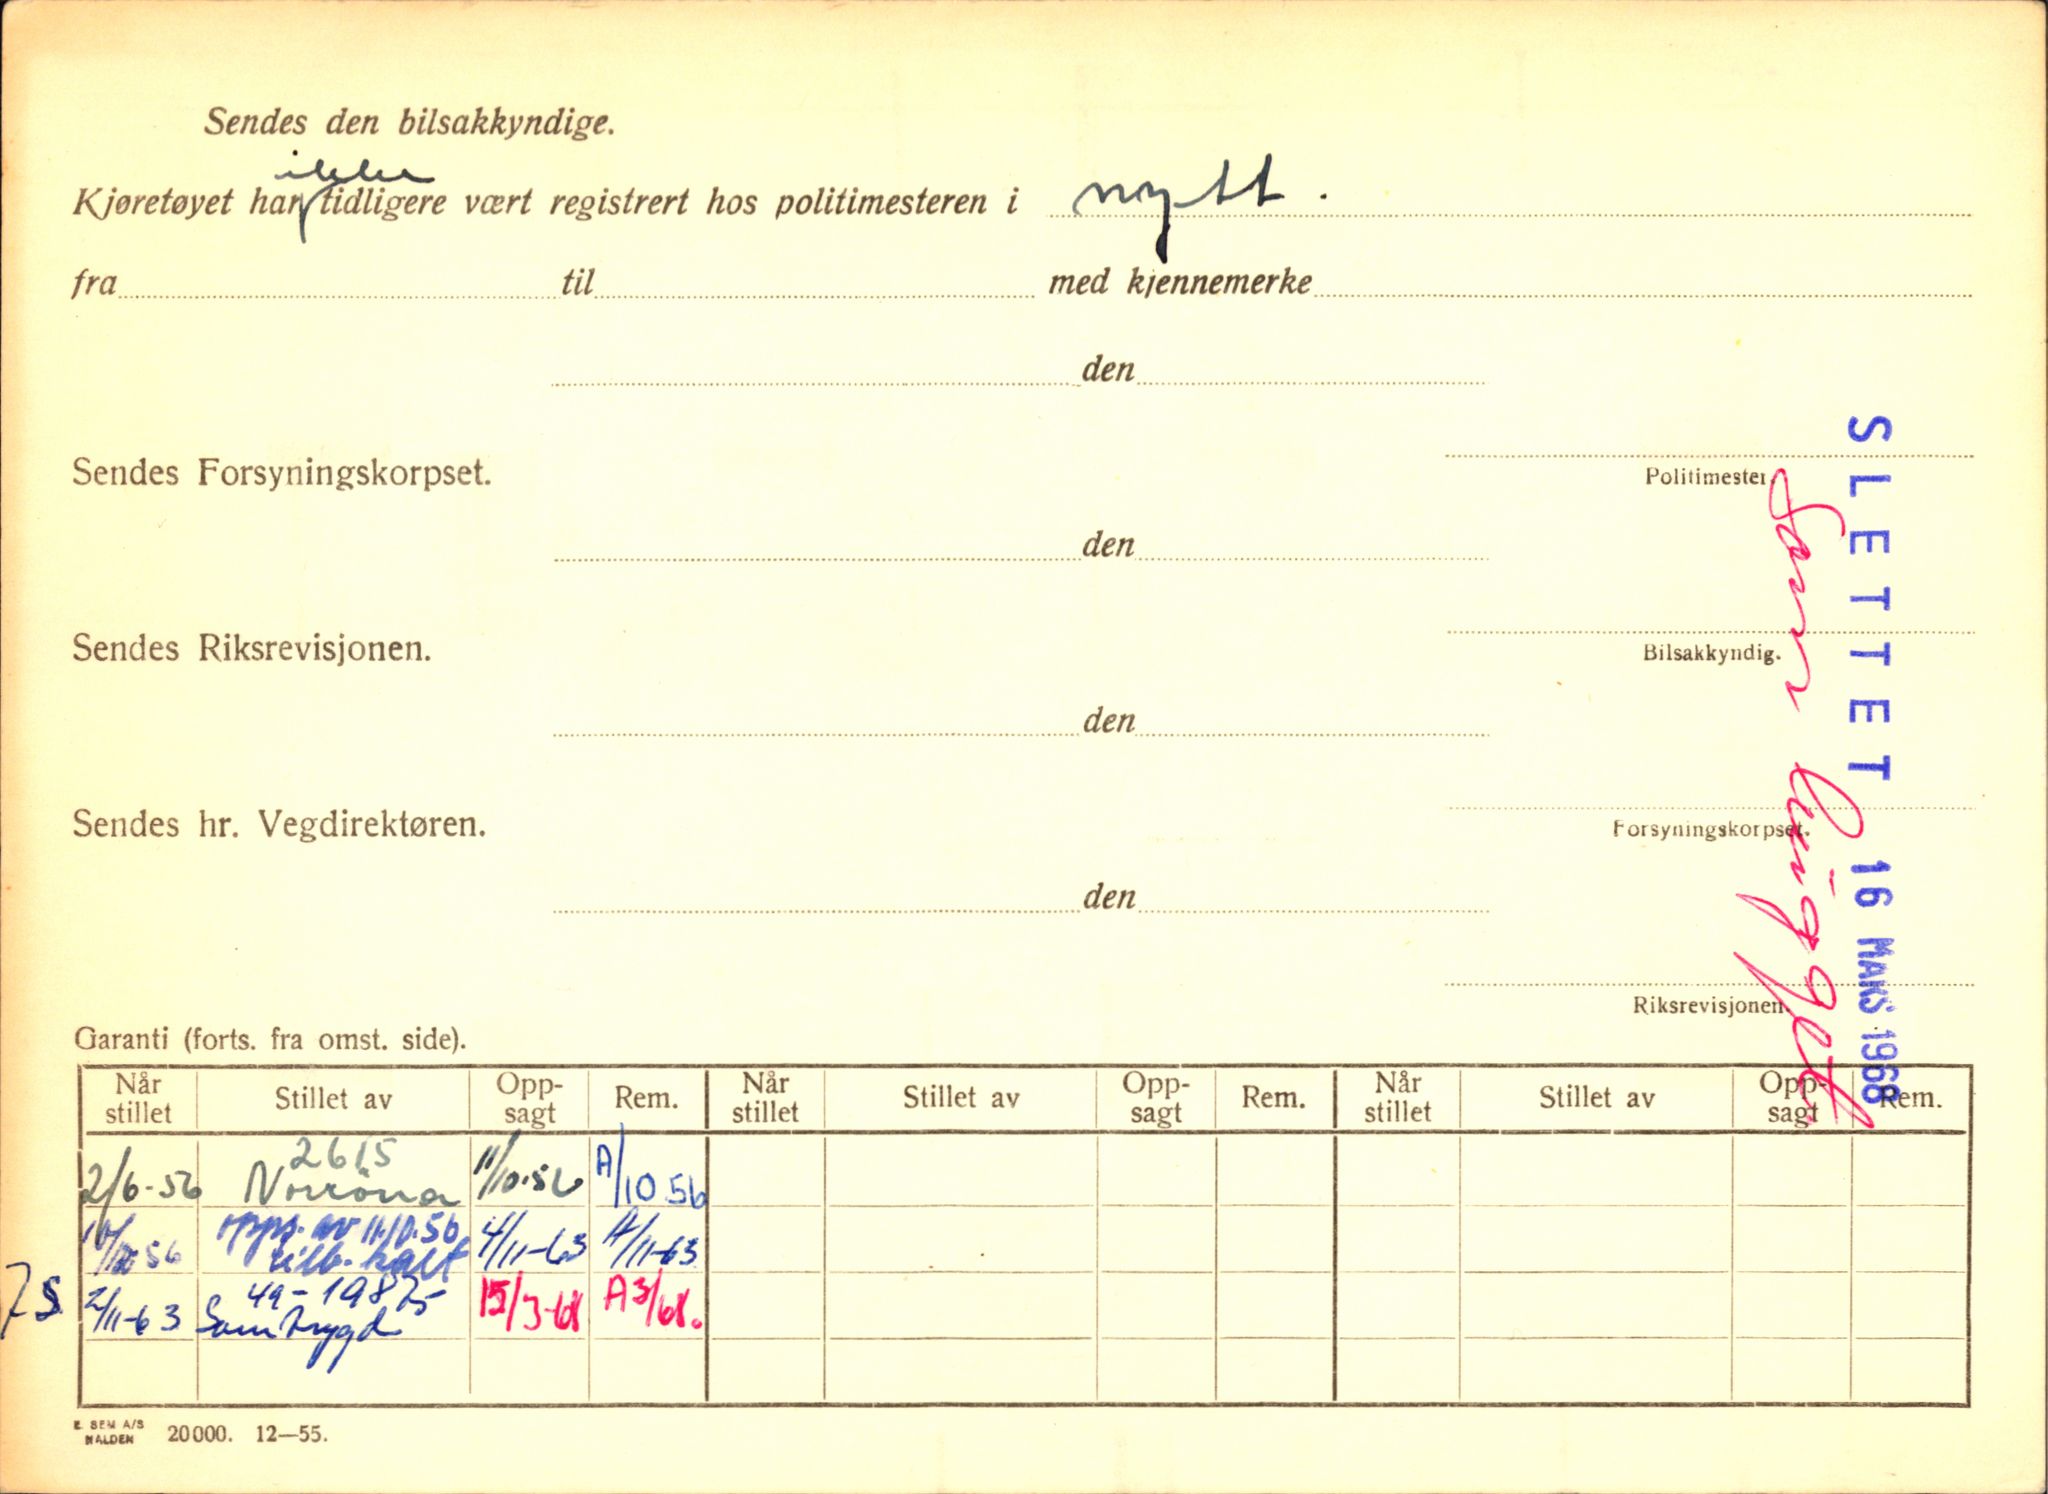 Sendes den bilsakkyndige.
ikke
Kjøretøyet har tidligere vært registrert hos politimesteren i nytt.
fra til med kjennemerke
den
Sendes Forsyningskorpset.
Politimester.
den
Sendes Riksrevisjonen.
Bilsakkyndig.
den
Sendes hr. Vegdirektøren.
Forsyningskorpset.
den
Riksrevisjonen.
SLETTET 16 MARS 1968
Som hugget
Garanti (forts. fra omst. side).
Når stillet Stillet av Opp-sagt Rem. Når stillet Stillet av Opp-sagt Rem. Når stillet Stillet av Opp-sagt Rem.
2615
2/6-56 Norröna 11/10-56 A/10 56
opps. av 11.10.56
tilb. kalt 4/11-63 A/11-63
7S 2/11-63 Samtrygd 15/3-68 A3/68.
E. SEM A/S
HALDEN 20000. 12—55.